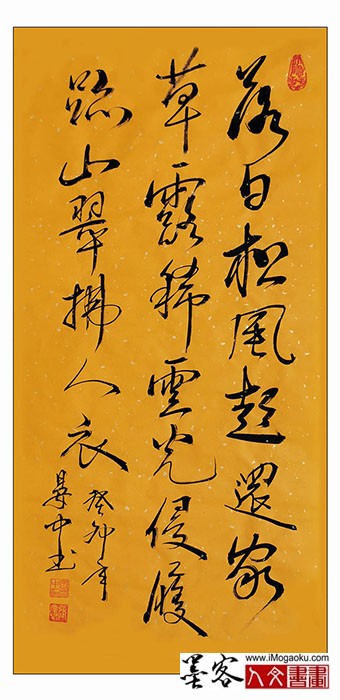 落日松風起還家
草露稀雲光侵履
跡山翠拂人衣
癸卯年
墨客
www.iMogaoku.com
人文書畫